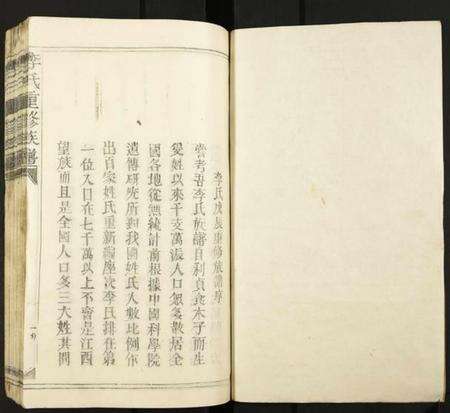 李氏戊辰重修族譜序
嘗考吾李氏族譜自利貞食木子而生
受姓以來千支萬派人口眾多散居全
國各地從無統計前根據中國科學院
遺傳研究所對我國姓氏人數比例作
出百家姓氏重新編座次李氏排在第
一位人口在七千萬以上不曾是江西
望族而且是全國人口多三大姓其間
李氏重修族譜